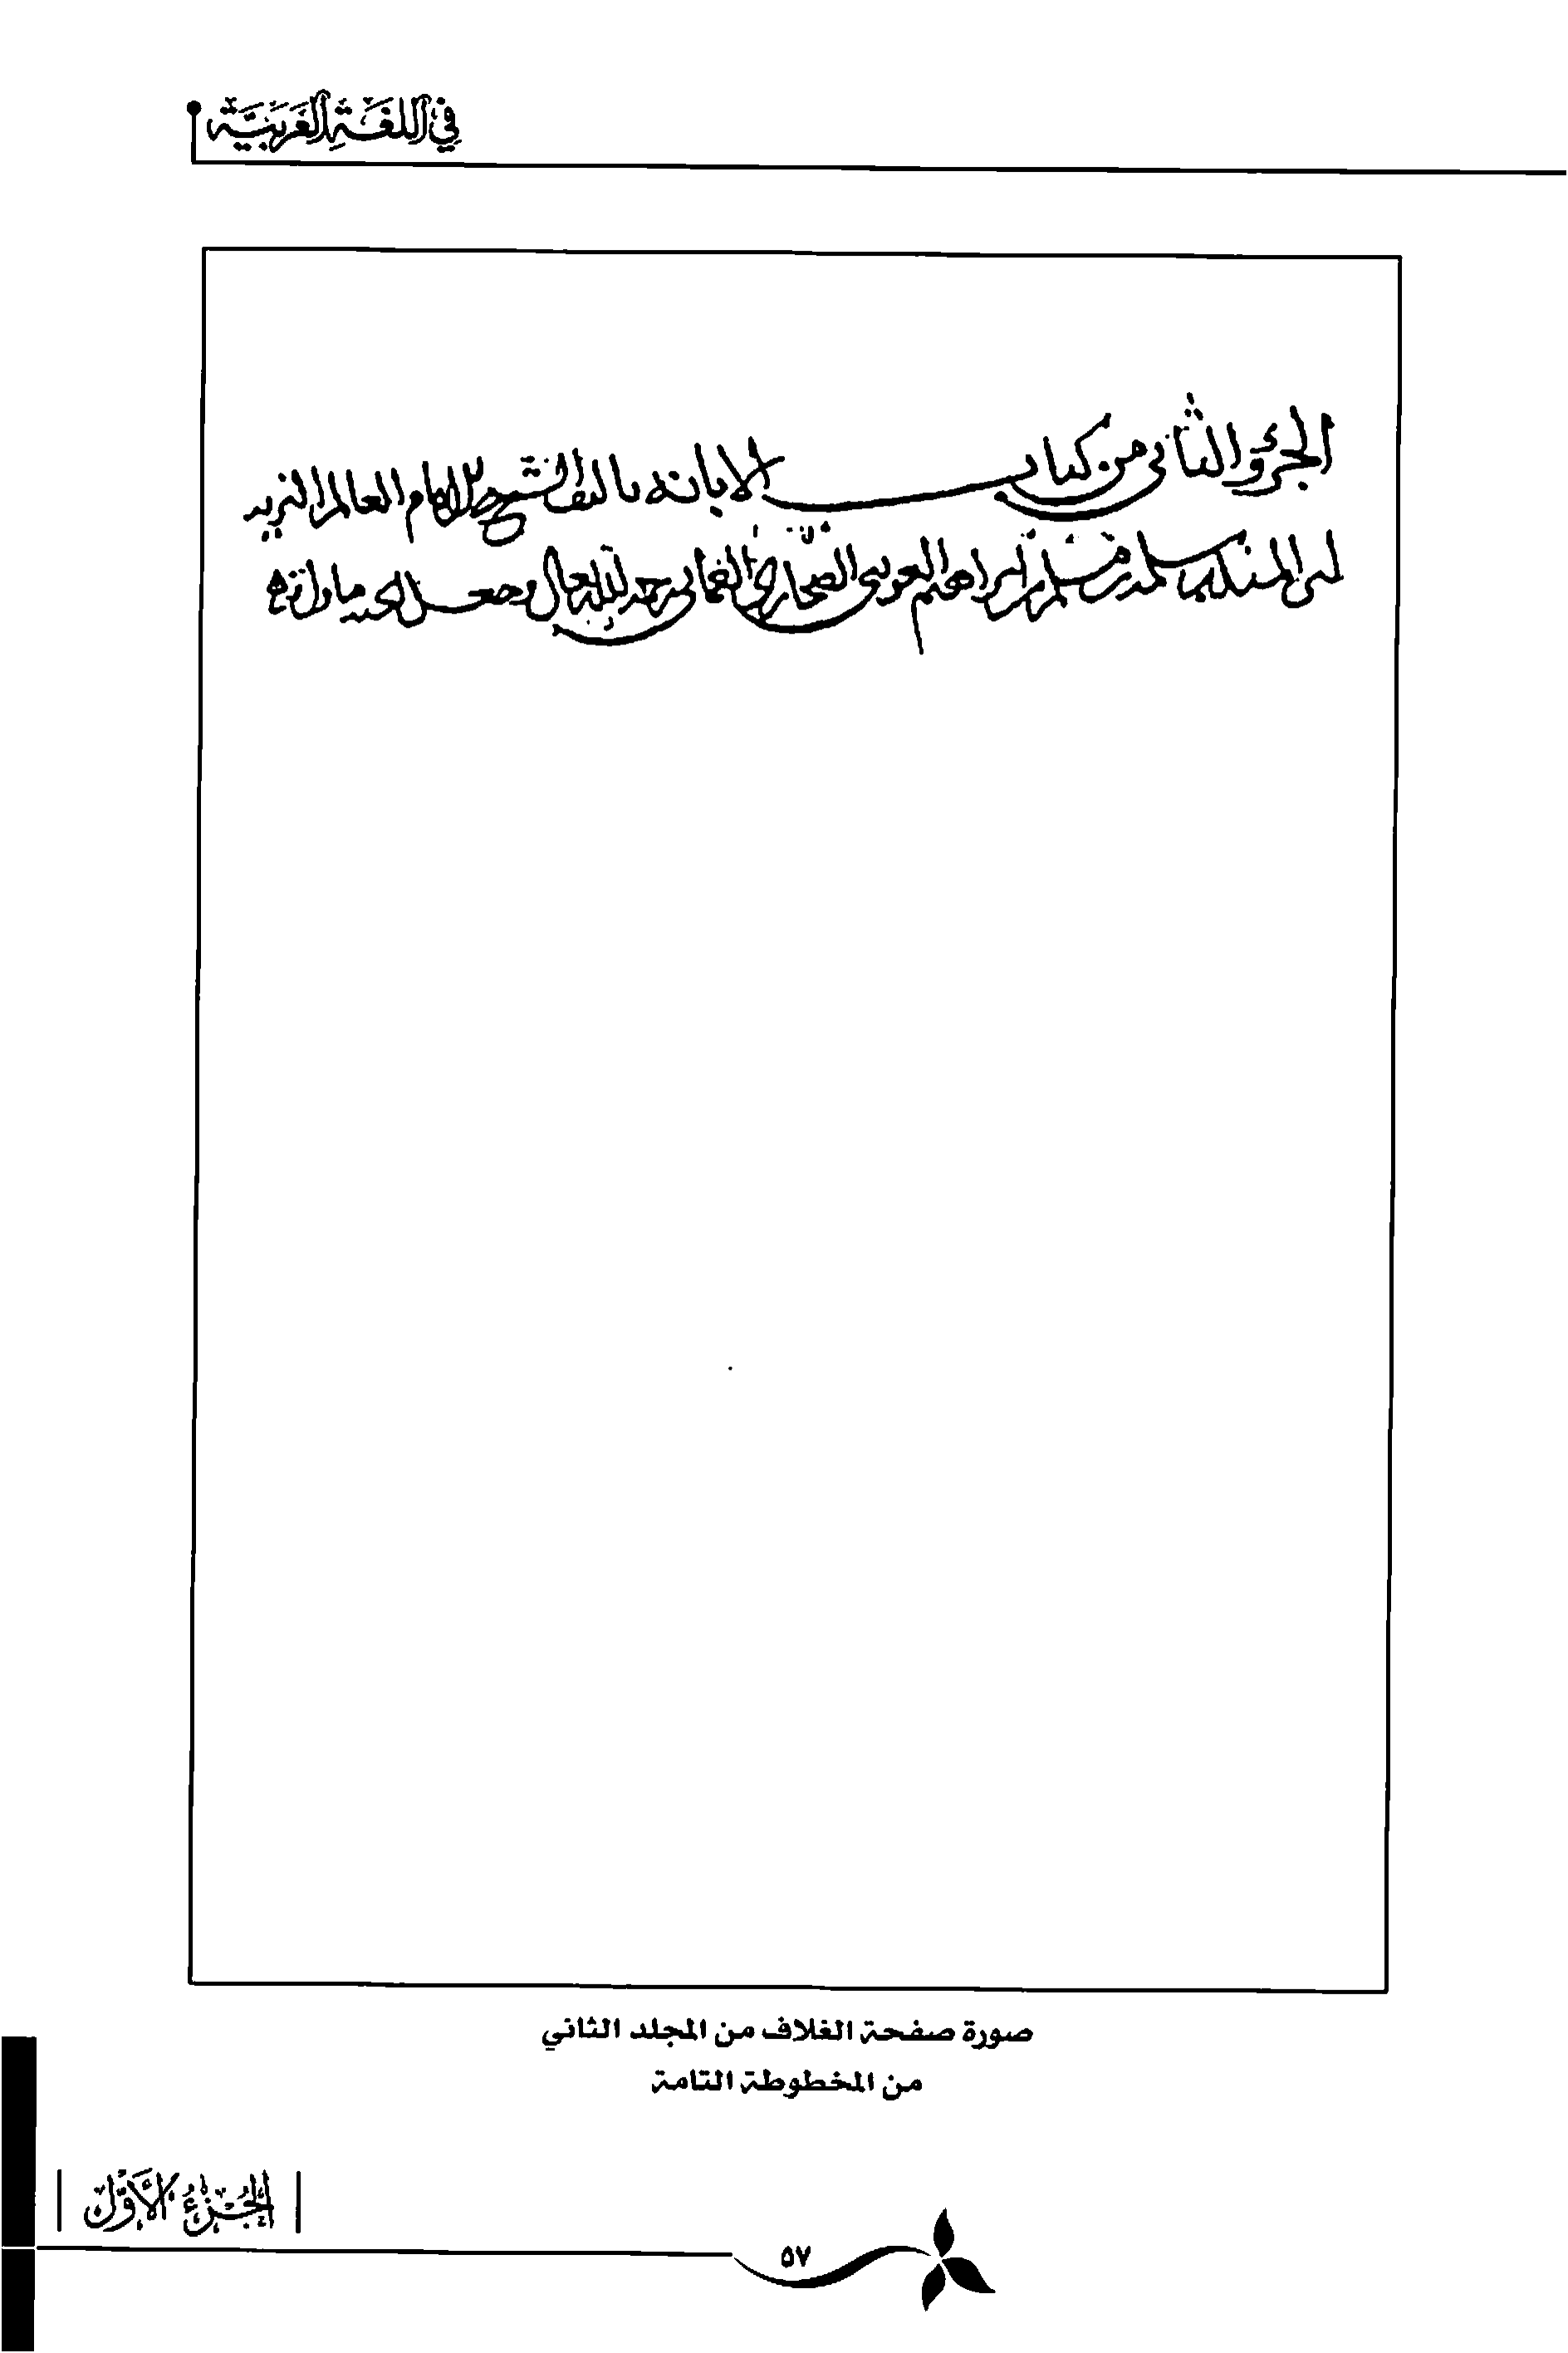 في اللغة العربية
الجزؤ الثاني من كتاب الابانه تاليف الشيخ الامام العالم النزيه
ابي المنذر سلمه بن مسلم بن ابراهيم العوتبي الصحاري العماني رحمه الله تعالى وجعل
صورة صفحة الغلاف من المجلد الثاني
من المخطوطة التامة
الجزء الأول
٥٧